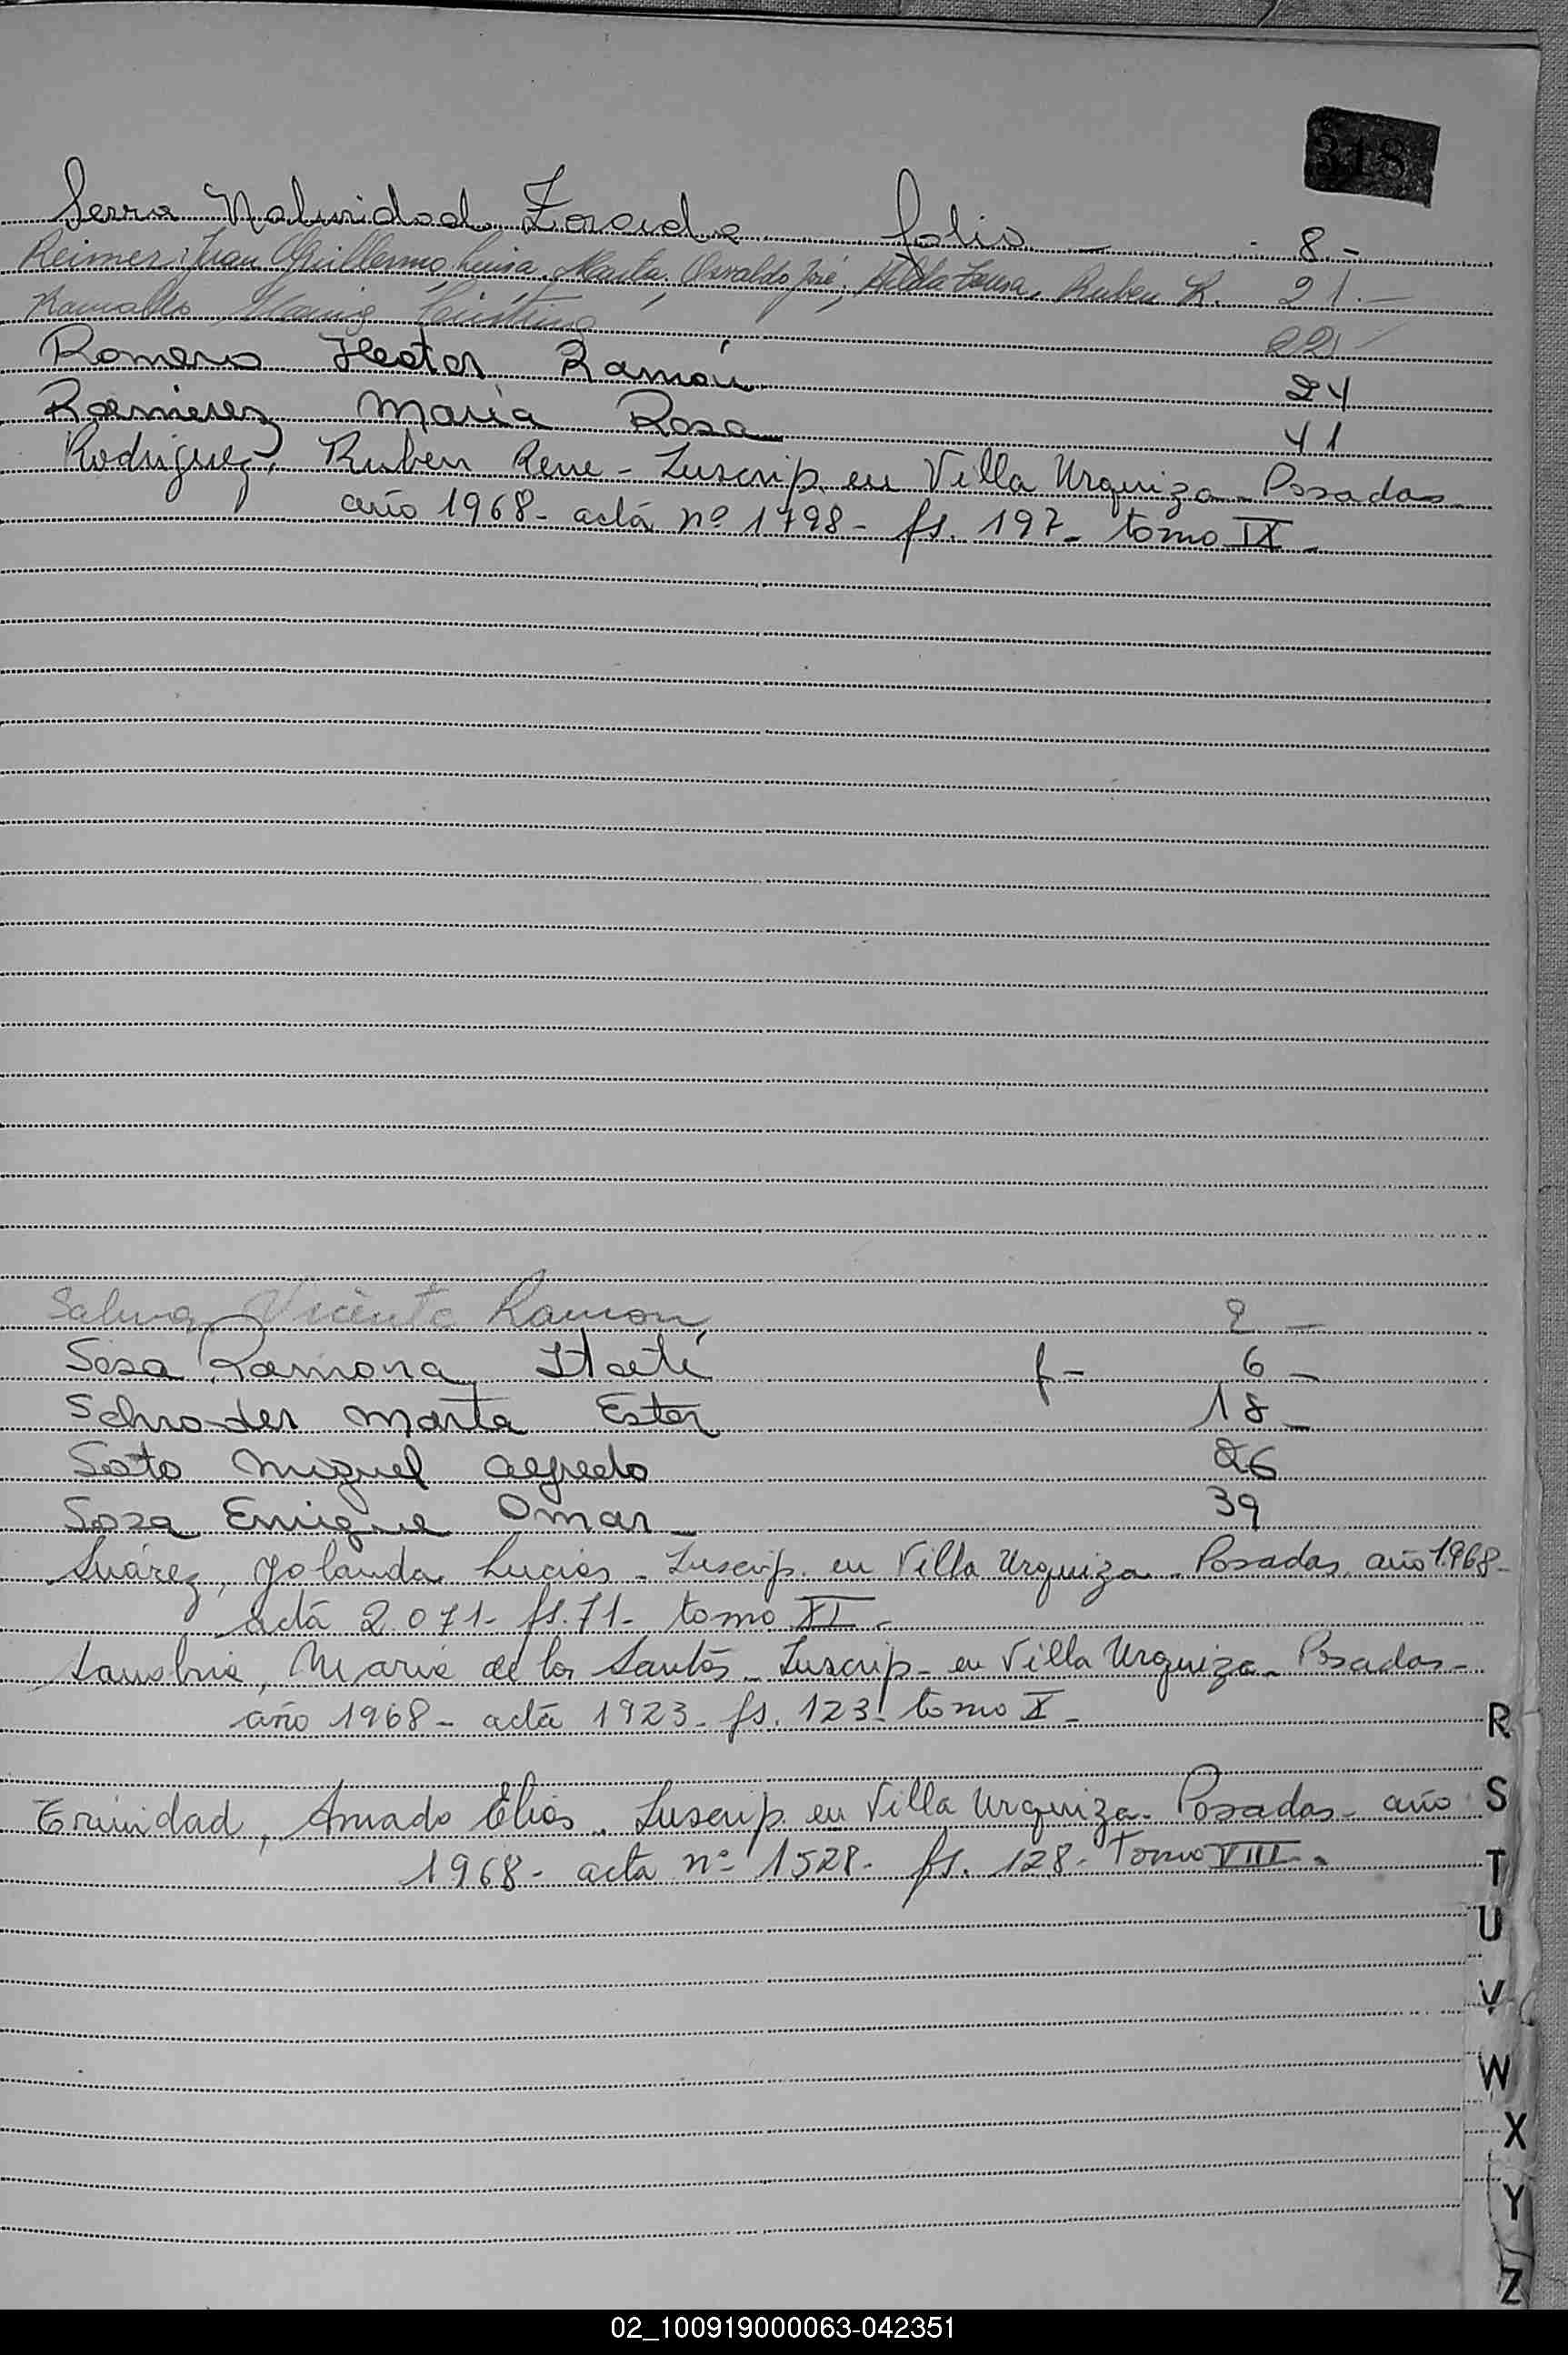 318
Serra Natividad Zoraida folio — 8.-
Reimer: Juan Guillermo, Luisa, Marta, Osvaldo José, Hilda Luisa, Ruben R. 21.—
Ramallo Maria Faustina 22
Romero Hector Ramón 24
Ramirez Maria Rosa 41
Rodriguez, Ruben Rene - Inscrip. en Villa Urquiza - Posadas
año 1968 - actá nº 1798 - fs. 197 - tomo IX -
Salva Vicente Ramon 2 —
Sosa Ramona Itatí f - 6 —
Schroder Marta Ester 18 —
Soto Miguel Alfredo 26
Soza Enrique Omar - 39
Suárez, Yolanda Lucia - Inscrip. en Villa Urquiza - Posadas año 1968 -
actá 2.071 - fs. 71 - tomo XI -
Sanabria, Maria de los Santos - Inscrip - en Villa Urquiza - Posadas -
año 1968 - actá 1923 - fs. 123 - tomo X -
R
Trinidad, Amado Elias. Inscrip en Villa Urquiza - Posadas - año
S
1968 - acta nº 1528 - fs. 128 - Tomo VIII -
T
U
V
W
X
Y
Z
02_100919000063-042351